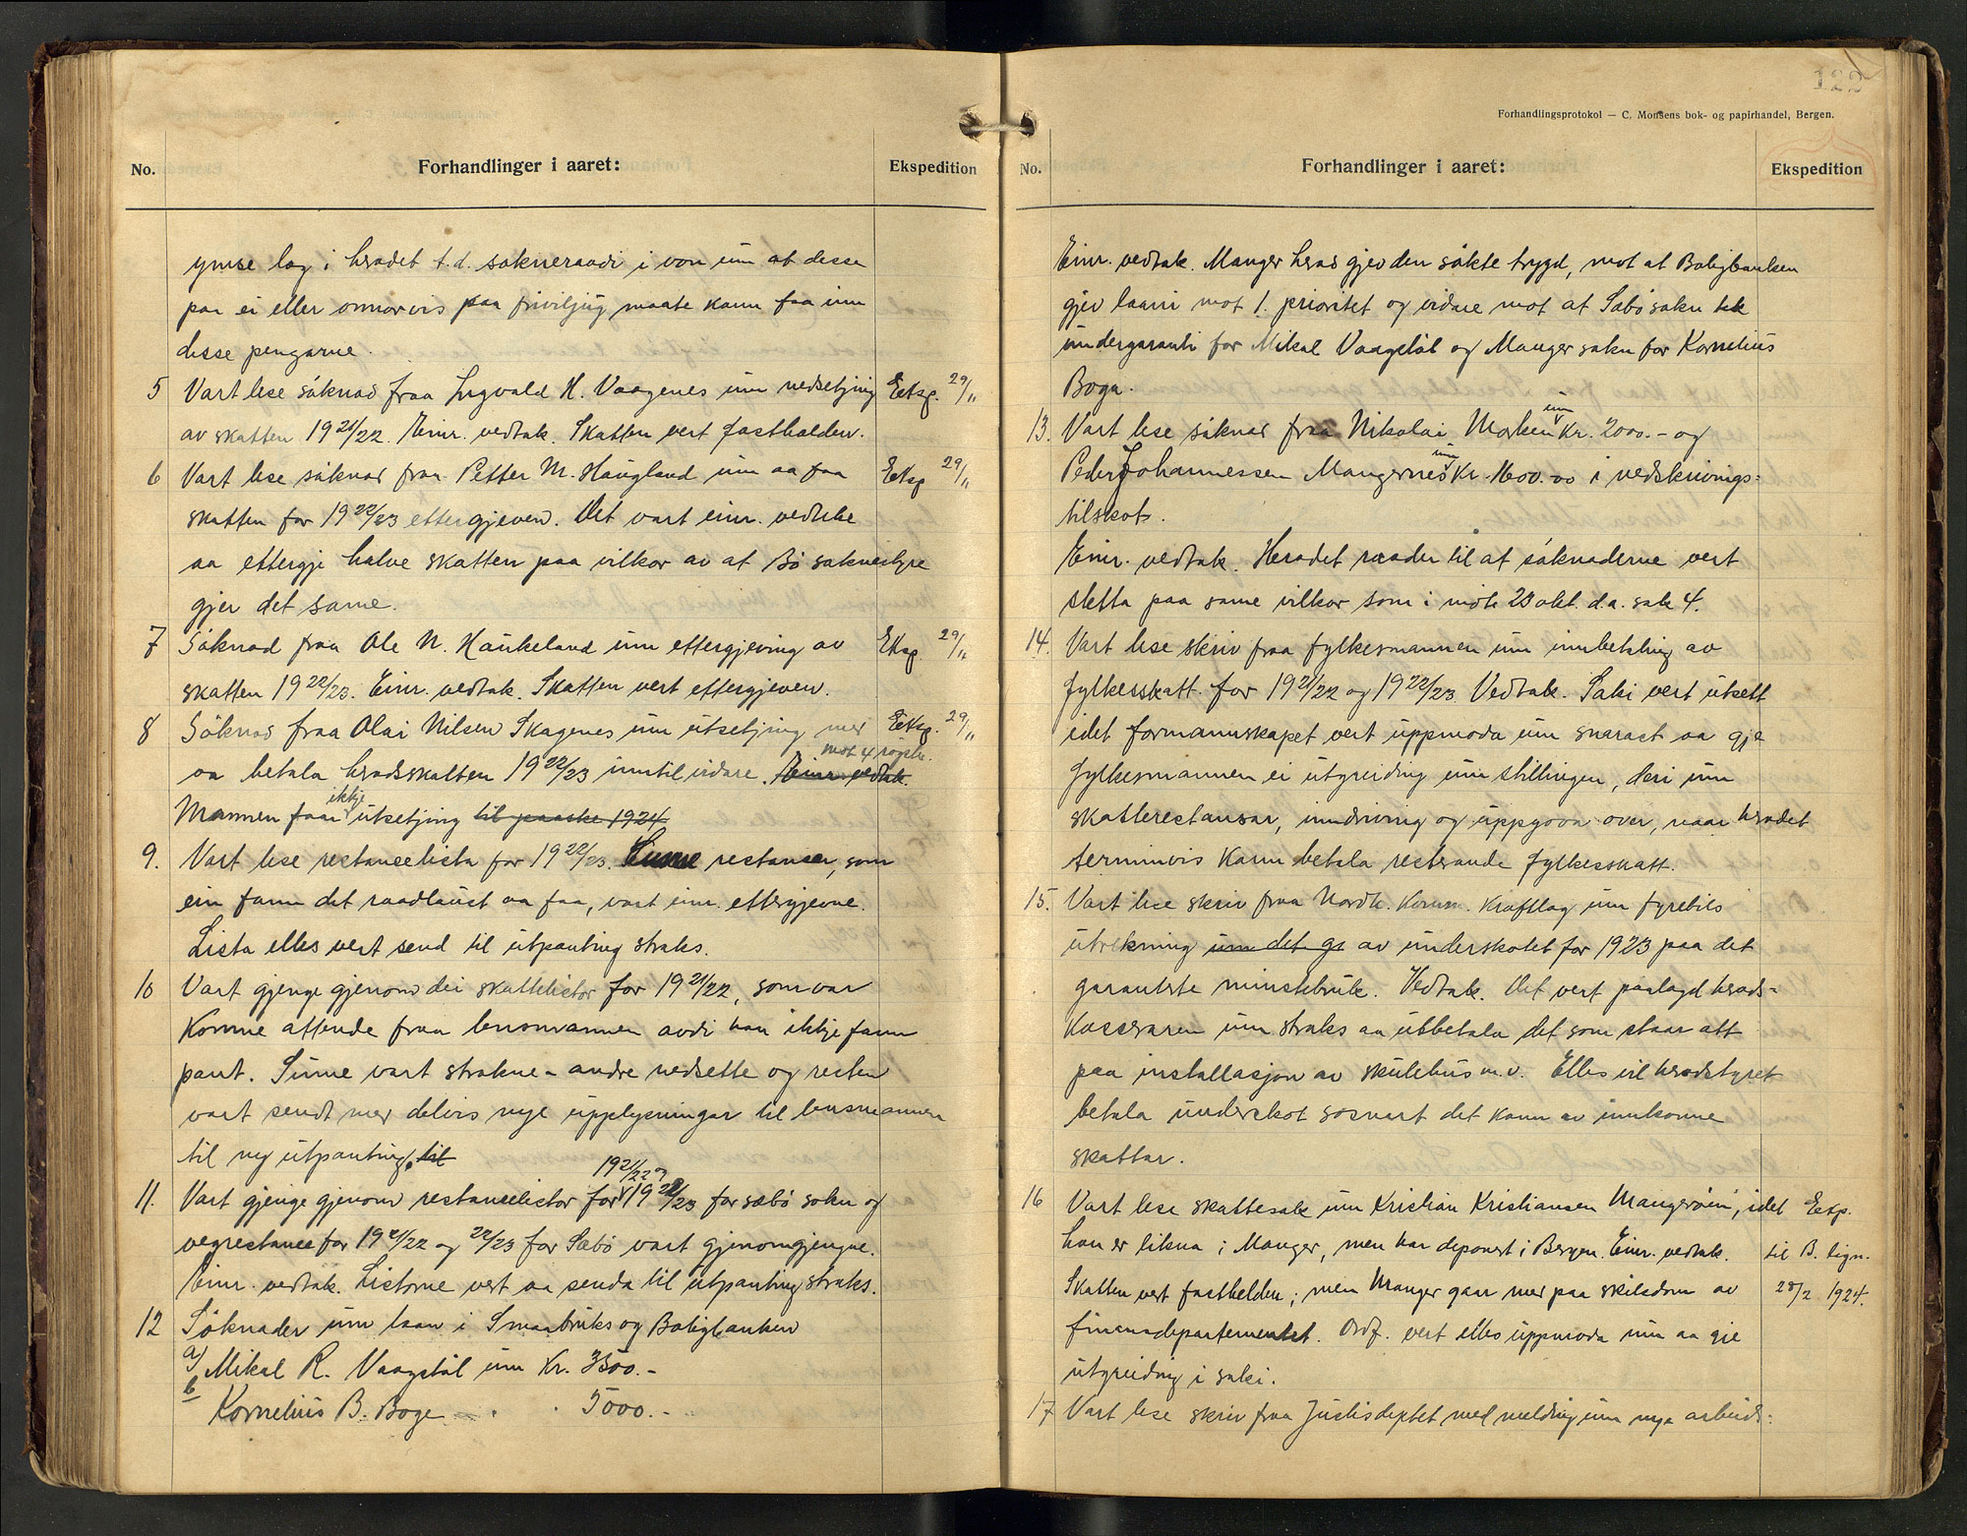 No. Forhandlinger i aaret: Ekspedition
ymse lag i heradet t.d. sokneraadi i von um at desse
paa ei eller onnorvis paa friviljug maate kann faa inn
desse pengarne.
5 Vart lese söknad fraa Ingvald H. Vaagenes um nedsetjing Eksp. 29/11
av skatten 1921/22. Einr. vedtak. Skatten vert fasthalden.
6 Vart lese söknad fraa Petter M. Haugland um aa faa Eksp 29/11
skatten for 1922/23 ettergjeven. Det vart einr. vedteke
aa ettergje halve skatten paa vilkor av at Bö soknestyre
gjer det same.
7 Söknad fraa Ole N. Haukeland um ettergjeving av Eksp. 29/11
skatten 1922/23. Einr. vedtak. Skatten vert ettergjeven.
8 Söknad fraa Olai Nilsen Skagenes um utsetjing med Eksp. 29/11
mot 4 røyster.
aa betala heradsskatten 1922/23 inntil vidare. Einr. vedtak.
ikkje
Mannen faar utsetjing til paaske 1924
9. Vart lese restanselista for 1922/23. Sume restanser, som
ein fann det raadlaust aa faa, vart einr. ettergjevne.
Lista elles vert send til utpanting straks.
10 Vart gjenge gjenom dei skattelistor for 1921/22, som var
komne attende fraa lensmannen avdi han ikkje fann
pant. Sume vart strokne - andre nedsette og resten
vart sendt med delvis nye upplysningar til lensmannen
til ny utpanting. til
1921/22 og
11. Vart gjenge gjenom restanselistor for 1922/23 for sæbö sokn og
vegrestanse for 1921/22 og 22/23 for Sæbö vart gjenomgjengne.
Einr. vedtak. Listorne vert aa senda til utpanting straks.
12 Söknader um laan i Smaabruks og Boligbanken
a) Mikal R. Vaagstöl um Kr. 3500.-
b Kornelius B. Boge - " " 5000.-
122
Forhandlingsprotokol — C. Monsens bok- og papirhandel, Bergen.
No. Forhandlinger i aaret: Ekspedition
Einr. vedtak. Manger herad gjev den sökte trygd, mot at Boligbanken
gjev laani mot 1. prioritet og vidare mot at Sæbö sokn tek
undergaranti for Mikal Vaagstöl og Manger sokn for Kornelius
Boge.
um
13. Vart lese söknad fraa Nikolai Morken Kr. 2000.- og
um
Peder Johannessen Mangernes Kr. 1600.00 i nedskrivings=
tilskot.
Einr. vedtak. Heradet raader til at söknaderne vert
stetta paa same vilkor som i möte 23 okt. d.a. sak 4.
14. Vart lese skriv fraa fylkesmannen um innbetaling av
fylkesskatt for 1921/22 og 1922/23. Vedtak. Saki vert utsett
idet formannskapet vert uppmoda um snarast aa gje
fylkesmannen ei utgreiding um stillingen, deri um
skatterestansar, inndriving og uppgåva over, naar heradet
terminvis kann betala resterande fylkesskatt.
15. Vart lese skriv fraa Nordh. Komm. Kraftlag um fyrebils
utrekning um det ga av underskotet for 1923 paa det
garanterte minstebruk. Vedtak. Det vert paalagd herads=
kasseraren um straks aa utbetala det som staar att
paa installasjon av skulehus m.v. Elles vil heradstyret
betala underskot sosnart det kann av innkomne
skattar.
16 Vart lese skattesak um Kristian Kristiansen Mangeröien, idet Eksp.
han er likna i Manger, men har deponert i Bergen. Einr. vedtak. til B. lign.
Skatten vert fasthelden; men Manger gaar med paa skilsdom av 28/2 1924.
finansdepartementet. Ordf. vert elles uppmoda um aa gje
utgreiding i saki.
17 Vart lese skriv fraa Justisdeptet med melding um nye arbeids=